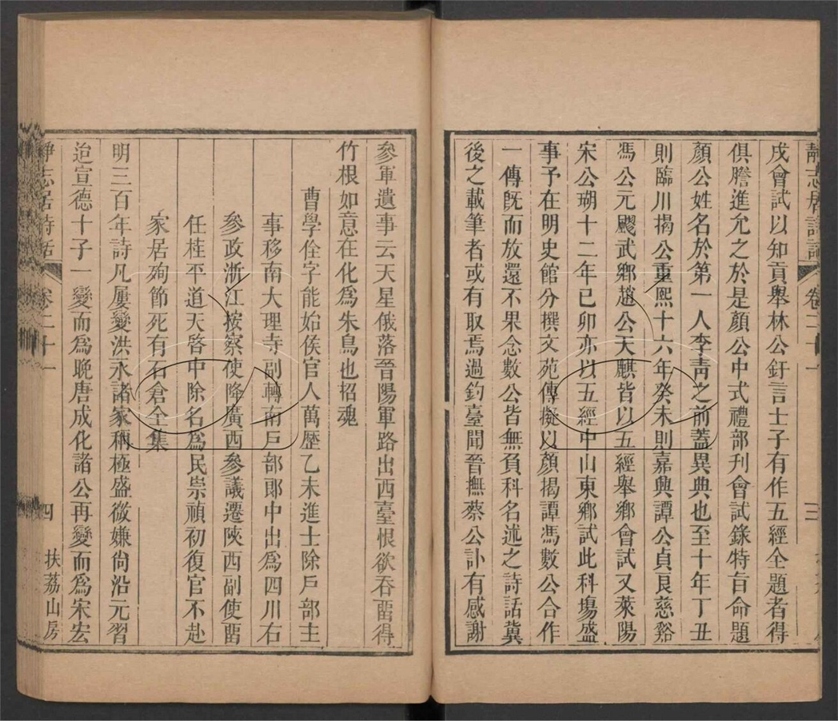 靜志居詩話
卷二十一
三
戌會試以知貢舉林公釬言士子有作五經全題者得
俱謄進允之於是顏公中式禮部刊會試錄特旨命題
顏公姓名於第一人李青之前蓋異典也至十年丁丑
則臨川揭公重熙十六年癸未則嘉興譚公貞良慈谿
馮公元颺武鄉趙公天麒皆以五經舉鄉會試又萊陽
宋公瑚十二年己卯亦以五經中山東鄉試此科場盛
事予在明史館分撰文苑傳擬以顏揭譚馮數公合作
一傳旣而放還不果念數公皆無負科名述之詩話冀
後之載筆者或有取焉過釣臺聞晉撫蔡公訃有感謝
參軍遺事云天星俄落晉陽軍路出西臺恨欲吞畱得
竹根如意在化爲朱鳥也招魂
曹學佺字能始侯官人萬歷乙未進士除戶部主
事移南大理寺副轉南戶部郎中出爲四川右
參政浙江按察使降廣西參議遷陜西副使畱
任桂平道天啓中除名爲民崇禎初復官不赴
家居殉節死有石倉全集
明三百年詩凡屢變洪永諸家稱極盛微嫌尙沿元習
迨宣德十子一變而爲晚唐成化諸公再變而爲宋宏
靜志居詩話
卷二十一
四
扶荔山房